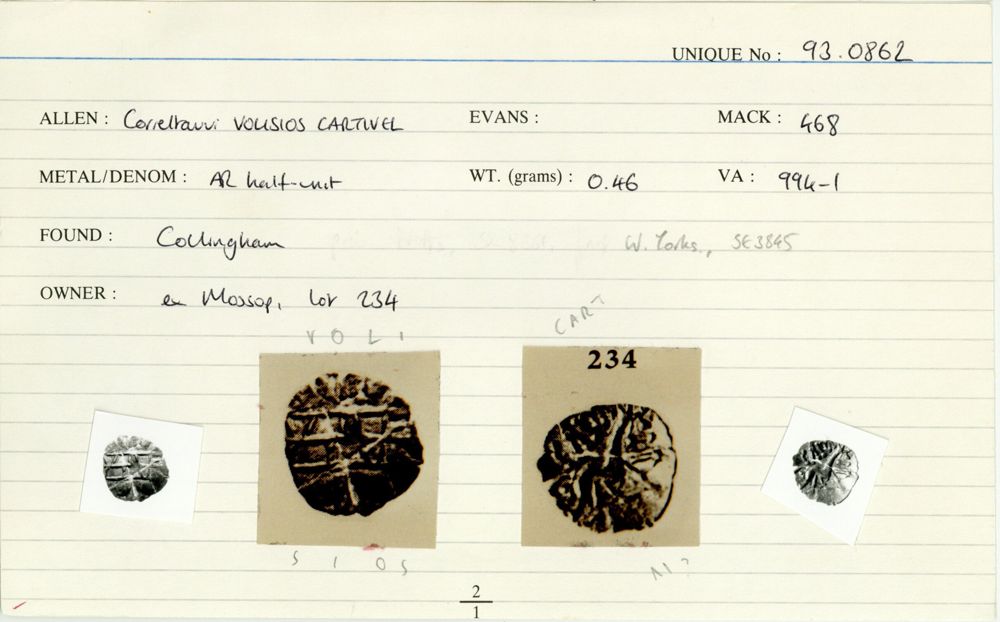 UNIQUE No : 93.0862
ALLEN : Corieltauvi VOLISIOS CARTIVEL EVANS : MACK : 468
METAL/DENOM : AR half-unit WT. (grams) : 0.46 VA : 994-1
FOUND : Collingham W. Yorks., SE3845
OWNER : ex Mossop, lot 234
V O L I CART
234
S I O S
2
1